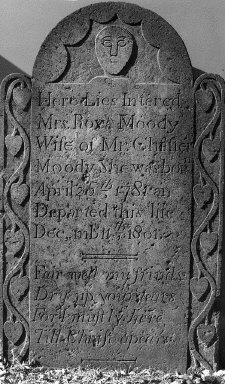 Here Lies Intered
Mrs. Roxa Moody
Wife of Mr. Clifier
Moody She was bor
April 26th 1781 an
Departed this life
Decmb 11th 1801
Farewell my frinds
Dry up your tears
For I must ly here
Till Christ apears